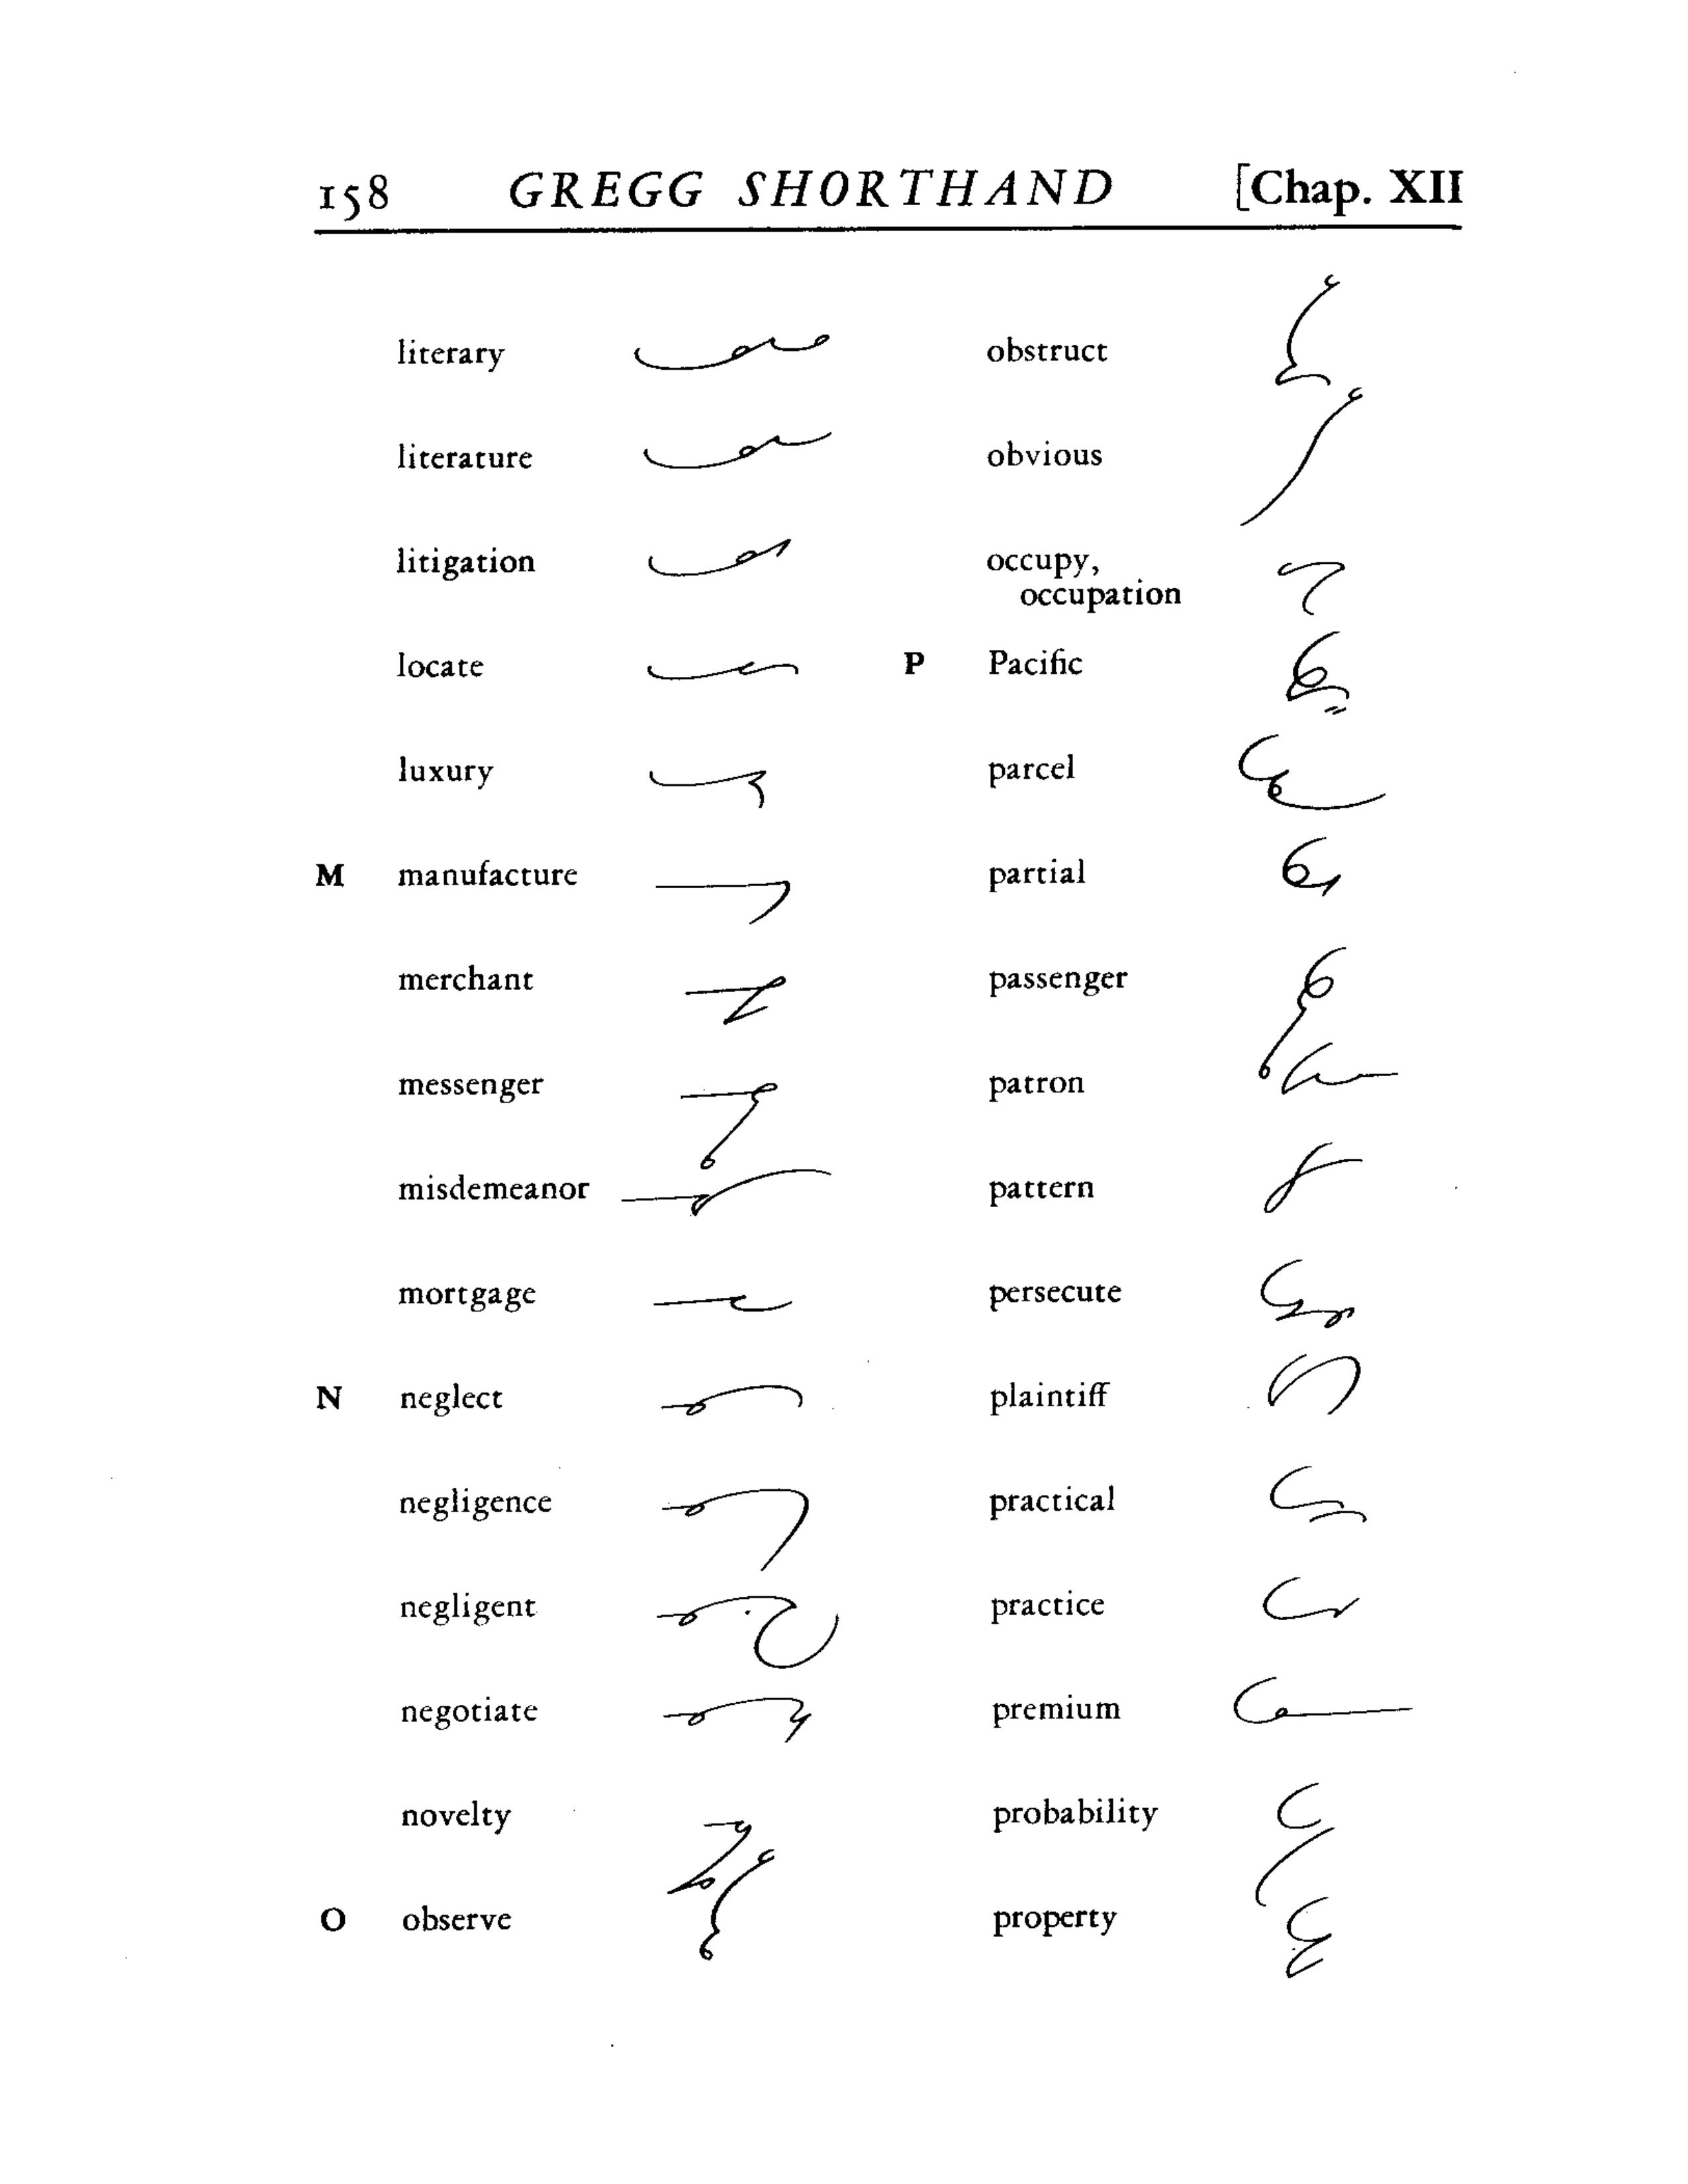 158 GREGG SHORTHAND [Chap. XII
literary
literature
litigation
locate
luxury
M manufacture
merchant
messenger
misdemeanor
mortgage
N neglect
negligence
negligent
negotiate
novelty
O observe
obstruct
obvious
occupy,
occupation
P Pacific
parcel
partial
passenger
patron
pattern
persecute
plaintiff
practical
practice
premium
probability
property